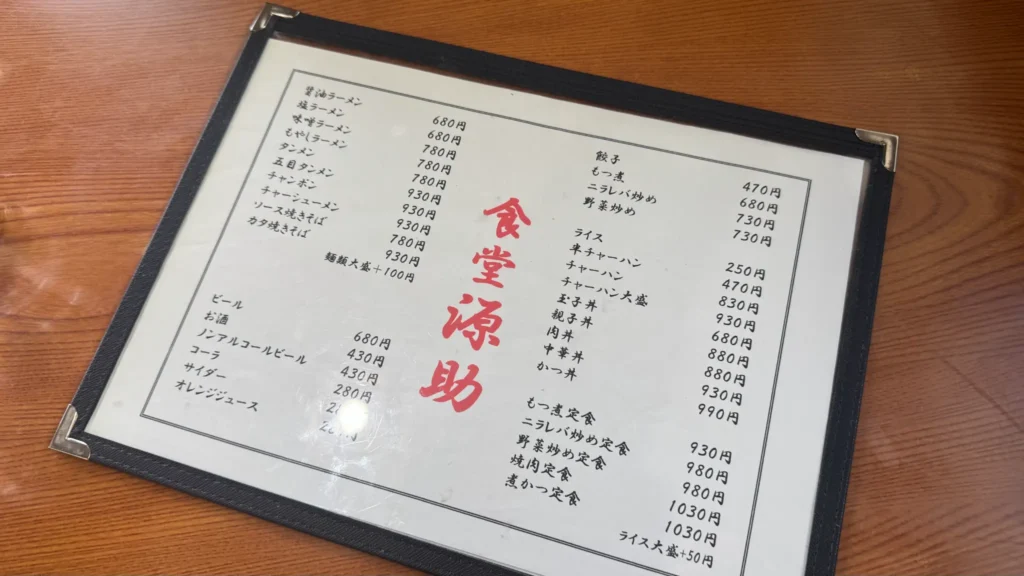 醤油ラーメン 680円
塩ラーメン 680円
味噌ラーメン 780円
もやしラーメン 780円
タンメン 780円
五目タンメン 930円
チャンポン 930円
チャーシューメン 930円
ソース焼きそば 780円
カタ焼きそば 930円
麺類大盛+100円
ビール 680円
お酒 430円
ノンアルコールビール 430円
コーラ 280円
サイダー
オレンジジュース
食堂源助
餃子 470円
もつ煮 680円
ニラレバ炒め 730円
野菜炒め 730円
ライス 250円
半チャーハン 470円
チャーハン 830円
チャーハン大盛 930円
玉子丼 680円
親子丼 880円
肉丼 880円
中華丼 930円
かつ丼 990円
もつ煮定食 930円
ニラレバ炒め定食 980円
野菜炒め定食 980円
焼肉定食 1030円
煮かつ定食 1030円
ライス大盛+50円